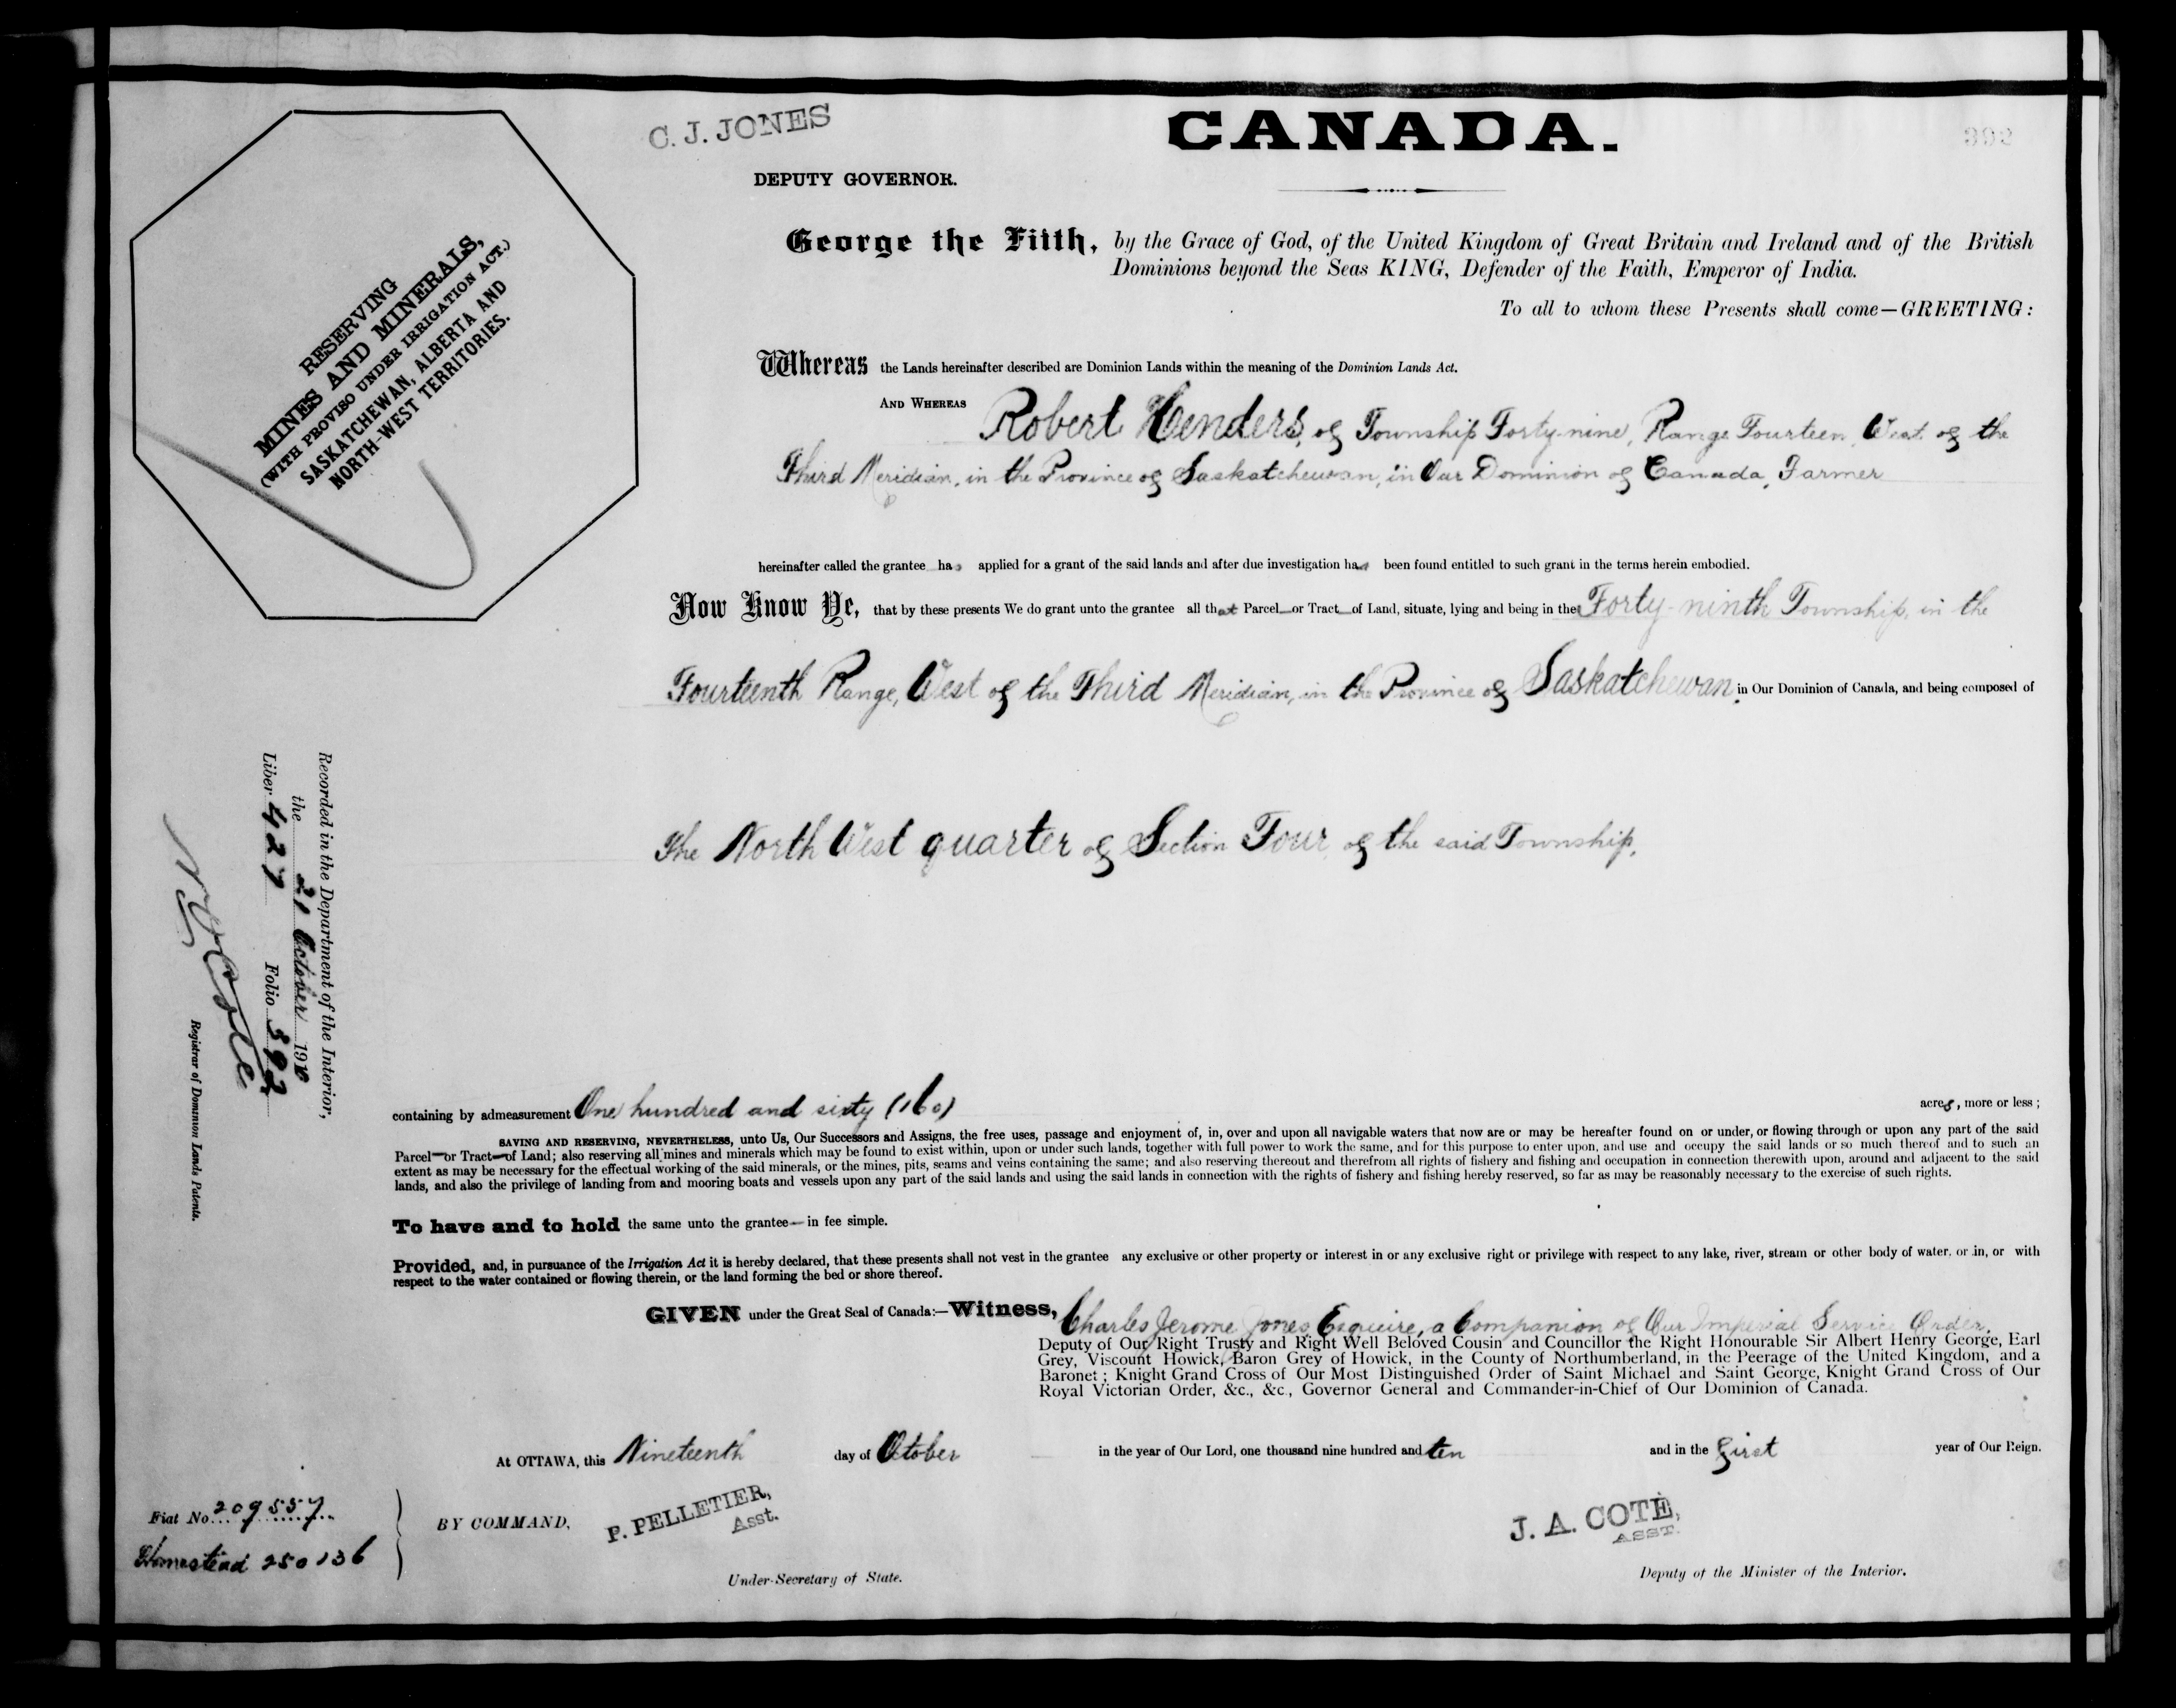 C. J. JONES
DEPUTY GOVERNOR.
CANADA.
392
George the Fifth, by the Grace of God, of the United Kingdom of Great Britain and Ireland and of the British
Dominions beyond the Seas KING, Defender of the Faith, Emperor of India.
To all to whom these Presents shall come—GREETING:
RESERVING
MINES AND MINERALS,
(WITH PROVISO UNDER IRRIGATION ACT.)
SASKATCHEWAN, ALBERTA AND
NORTH-WEST TERRITORIES.
Whereas the Lands hereinafter described are Dominion Lands within the meaning of the Dominion Lands Act.
AND WHEREAS Robert Henders, of Township Forty-nine, Range Fourteen, West of the
Third Meridian, in the Province of Saskatchewan, in Our Dominion of Canada, Farmer
hereinafter called the grantee has applied for a grant of the said lands and after due investigation has been found entitled to such grant in the terms herein embodied.
Now Know Ye, that by these presents We do grant unto the grantee all that Parcel or Tract of Land, situate, lying and being in the Forty-ninth Township, in the
Fourteenth Range, West of the Third Meridian, in the Province of Saskatchewan, in Our Dominion of Canada, and being composed of
The North West quarter of Section Four, of the said Township,
Recorded in the Department of the Interior,
the 21 October 1910
Liber 427 Folio 392
Registrar of Dominion Lands Patents.
containing by admeasurement One hundred and sixty (160) acres, more or less;
SAVING AND RESERVING, NEVERTHELESS, unto Us, Our Successors and Assigns, the free uses, passage and enjoyment of, in, over and upon all navigable waters that now are or may be hereafter found on or under, or flowing through or upon any part of the said
Parcel or Tract of Land; also reserving all mines and minerals which may be found to exist within, upon or under such lands, together with full power to work the same, and for this purpose to enter upon, and use and occupy the said lands or so much thereof and to such an
extent as may be necessary for the effectual working of the said minerals, or the mines, pits, seams and veins containing the same; and also reserving thereout and therefrom all rights of fishery and fishing and occupation in connection therewith upon, around and adjacent to the said
lands, and also the privilege of landing from and mooring boats and vessels upon any part of the said lands and using the said lands in connection with the rights of fishery and fishing hereby reserved, so far as may be reasonably necessary to the exercise of such rights.
To have and to hold the same unto the grantee in fee simple.
Provided, and, in pursuance of the Irrigation Act it is hereby declared, that these presents shall not vest in the grantee any exclusive or other property or interest in or any exclusive right or privilege with respect to any lake, river, stream or other body of water, or in, or with
respect to the water contained or flowing therein, or the land forming the bed or shore thereof.
GIVEN under the Great Seal of Canada:—Witness, Charles Jerome Jones Esquire, a Companion of Our Imperial Service Order,
Deputy of Our Right Trusty and Right Well Beloved Cousin and Councillor the Right Honourable Sir Albert Henry George, Earl
Grey, Viscount Howick, Baron Grey of Howick, in the County of Northumberland, in the Peerage of the United Kingdom, and a
Baronet; Knight Grand Cross of Our Most Distinguished Order of Saint Michael and Saint George, Knight Grand Cross of Our
Royal Victorian Order, &c., &c., Governor General and Commander-in-Chief of Our Dominion of Canada.
At OTTAWA, this Nineteenth day of October in the year of Our Lord, one thousand nine hundred and ten and in the First year of Our Reign.
Fiat No. 209557
Homestead 250136
BY COMMAND,
P. PELLETIER,
Asst.
Under-Secretary of State.
J. A. COTÉ,
ASST.
Deputy of the Minister of the Interior.